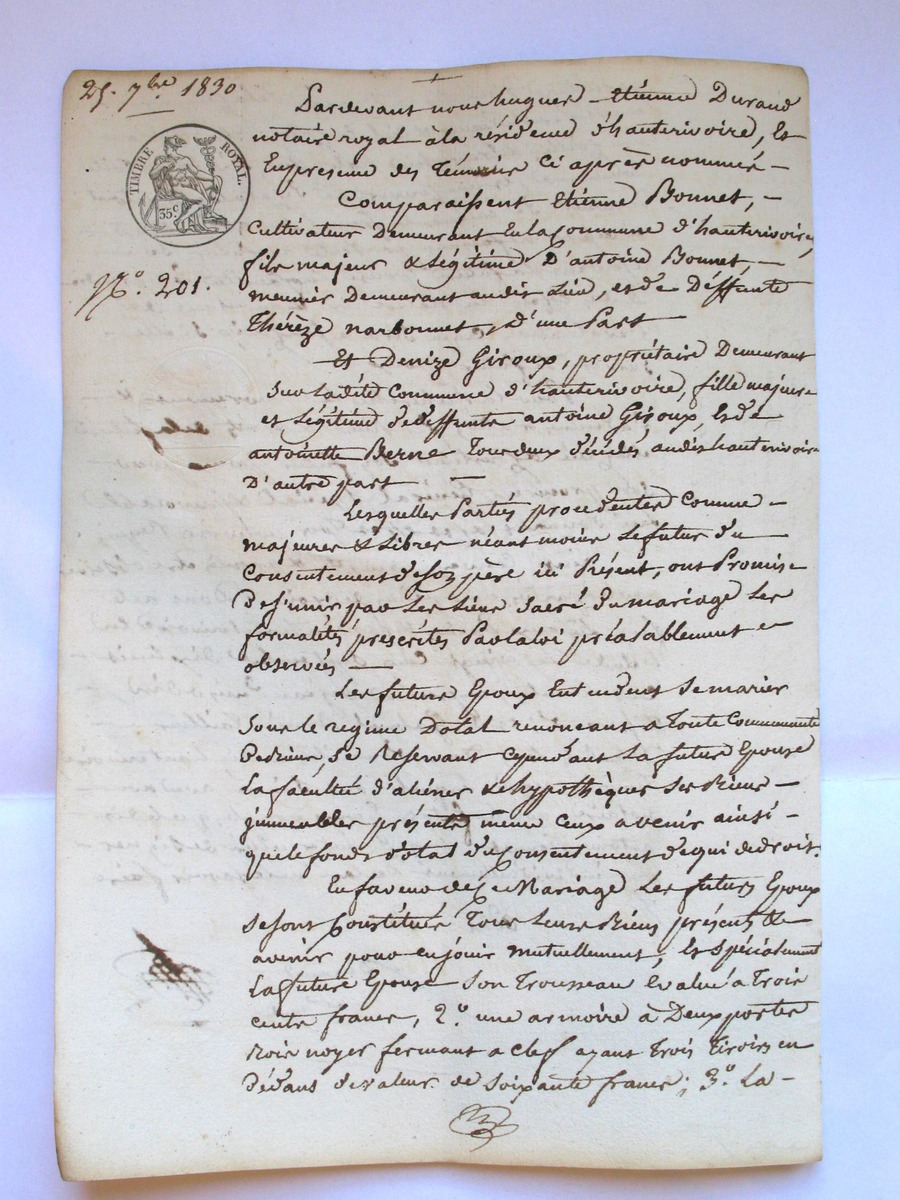 25. 7bre 1830
TIMBRE ROYAL.
35 c
N.o 201.
Pardevant nous hugues étiénne Durand
notaire royal à la résidence d'hauterivoire, Et
En presence des Témoins Ci après nommés –
Comparaissent Etiénne Bonnet, –
Cultivateur Demeurant En la Commune d'hauterivoire,
fils majeur & Légitime D'antoine Bonnet, –
meunier Demeurant audit Lieu, et de Déffunte
Thérèze narbonnet, d'une Part
Et Denize Giroux, propriétaire Demeurant
Sur ladité Commune d'hauterivoire, fille majeure
et Légitime de deffunts antoine Giroux, Et de
antoinette Berne Tous deux décédés audit hauterivoire
D'autre part –
Lesquelles Partiés procedentes Comme –
majeures & Libres néantmoins Le futur du
Consentement de son père ici Présent, ont Promis
De s'unir par Les Liens Sacré du mariage Les
formalités prescrites Par la loi préalablement
observées –
Les futurs Epoux Entendent Se marier
Sous le regime Dotal renoncant a Toute Communauté
De Biens, Se Reservant Cependant La future Epouse
La faculté d'aliéner & d'hypothèquer Ses Biens –
immeubles présents même Ceux avenir ainsi –
que le fonds dotal du Consentement de qui de droit.
En faveur de Ce Mariage Les futurs Epoux
Se sont Constitués Tous Leurs Biens présents &
avenir pour en jouir mutuellement, Et Spécialement
La future Epouse Son Trousseau Evalué a Trois
cents francs, 2.o une armoire à Deux portes
Bois noyer fermant a Clef ayant Trois Tiroirs en
Dédans de valeur de Soixante francs; 3.o La –